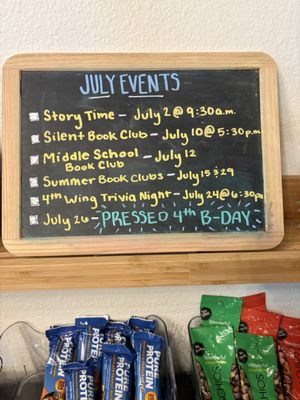 JULY EVENTS
Story Time - July 2 @ 9:30a.m.
Silent Book Club - July 10 @ 5:30p.m.
Middle School - July 12
Book Club
Summer Book Clubs - July 15 & 29
4th Wing Trivia Night - July 24 @ 6:30pm
July 26 - PRESSED 4th B-DAY
PURE PROTEIN
PURE PROTEIN
PURE PROTEIN
PURE PROTEIN
wonderful
PISTACHIOS
wonderful
PISTACHIOS